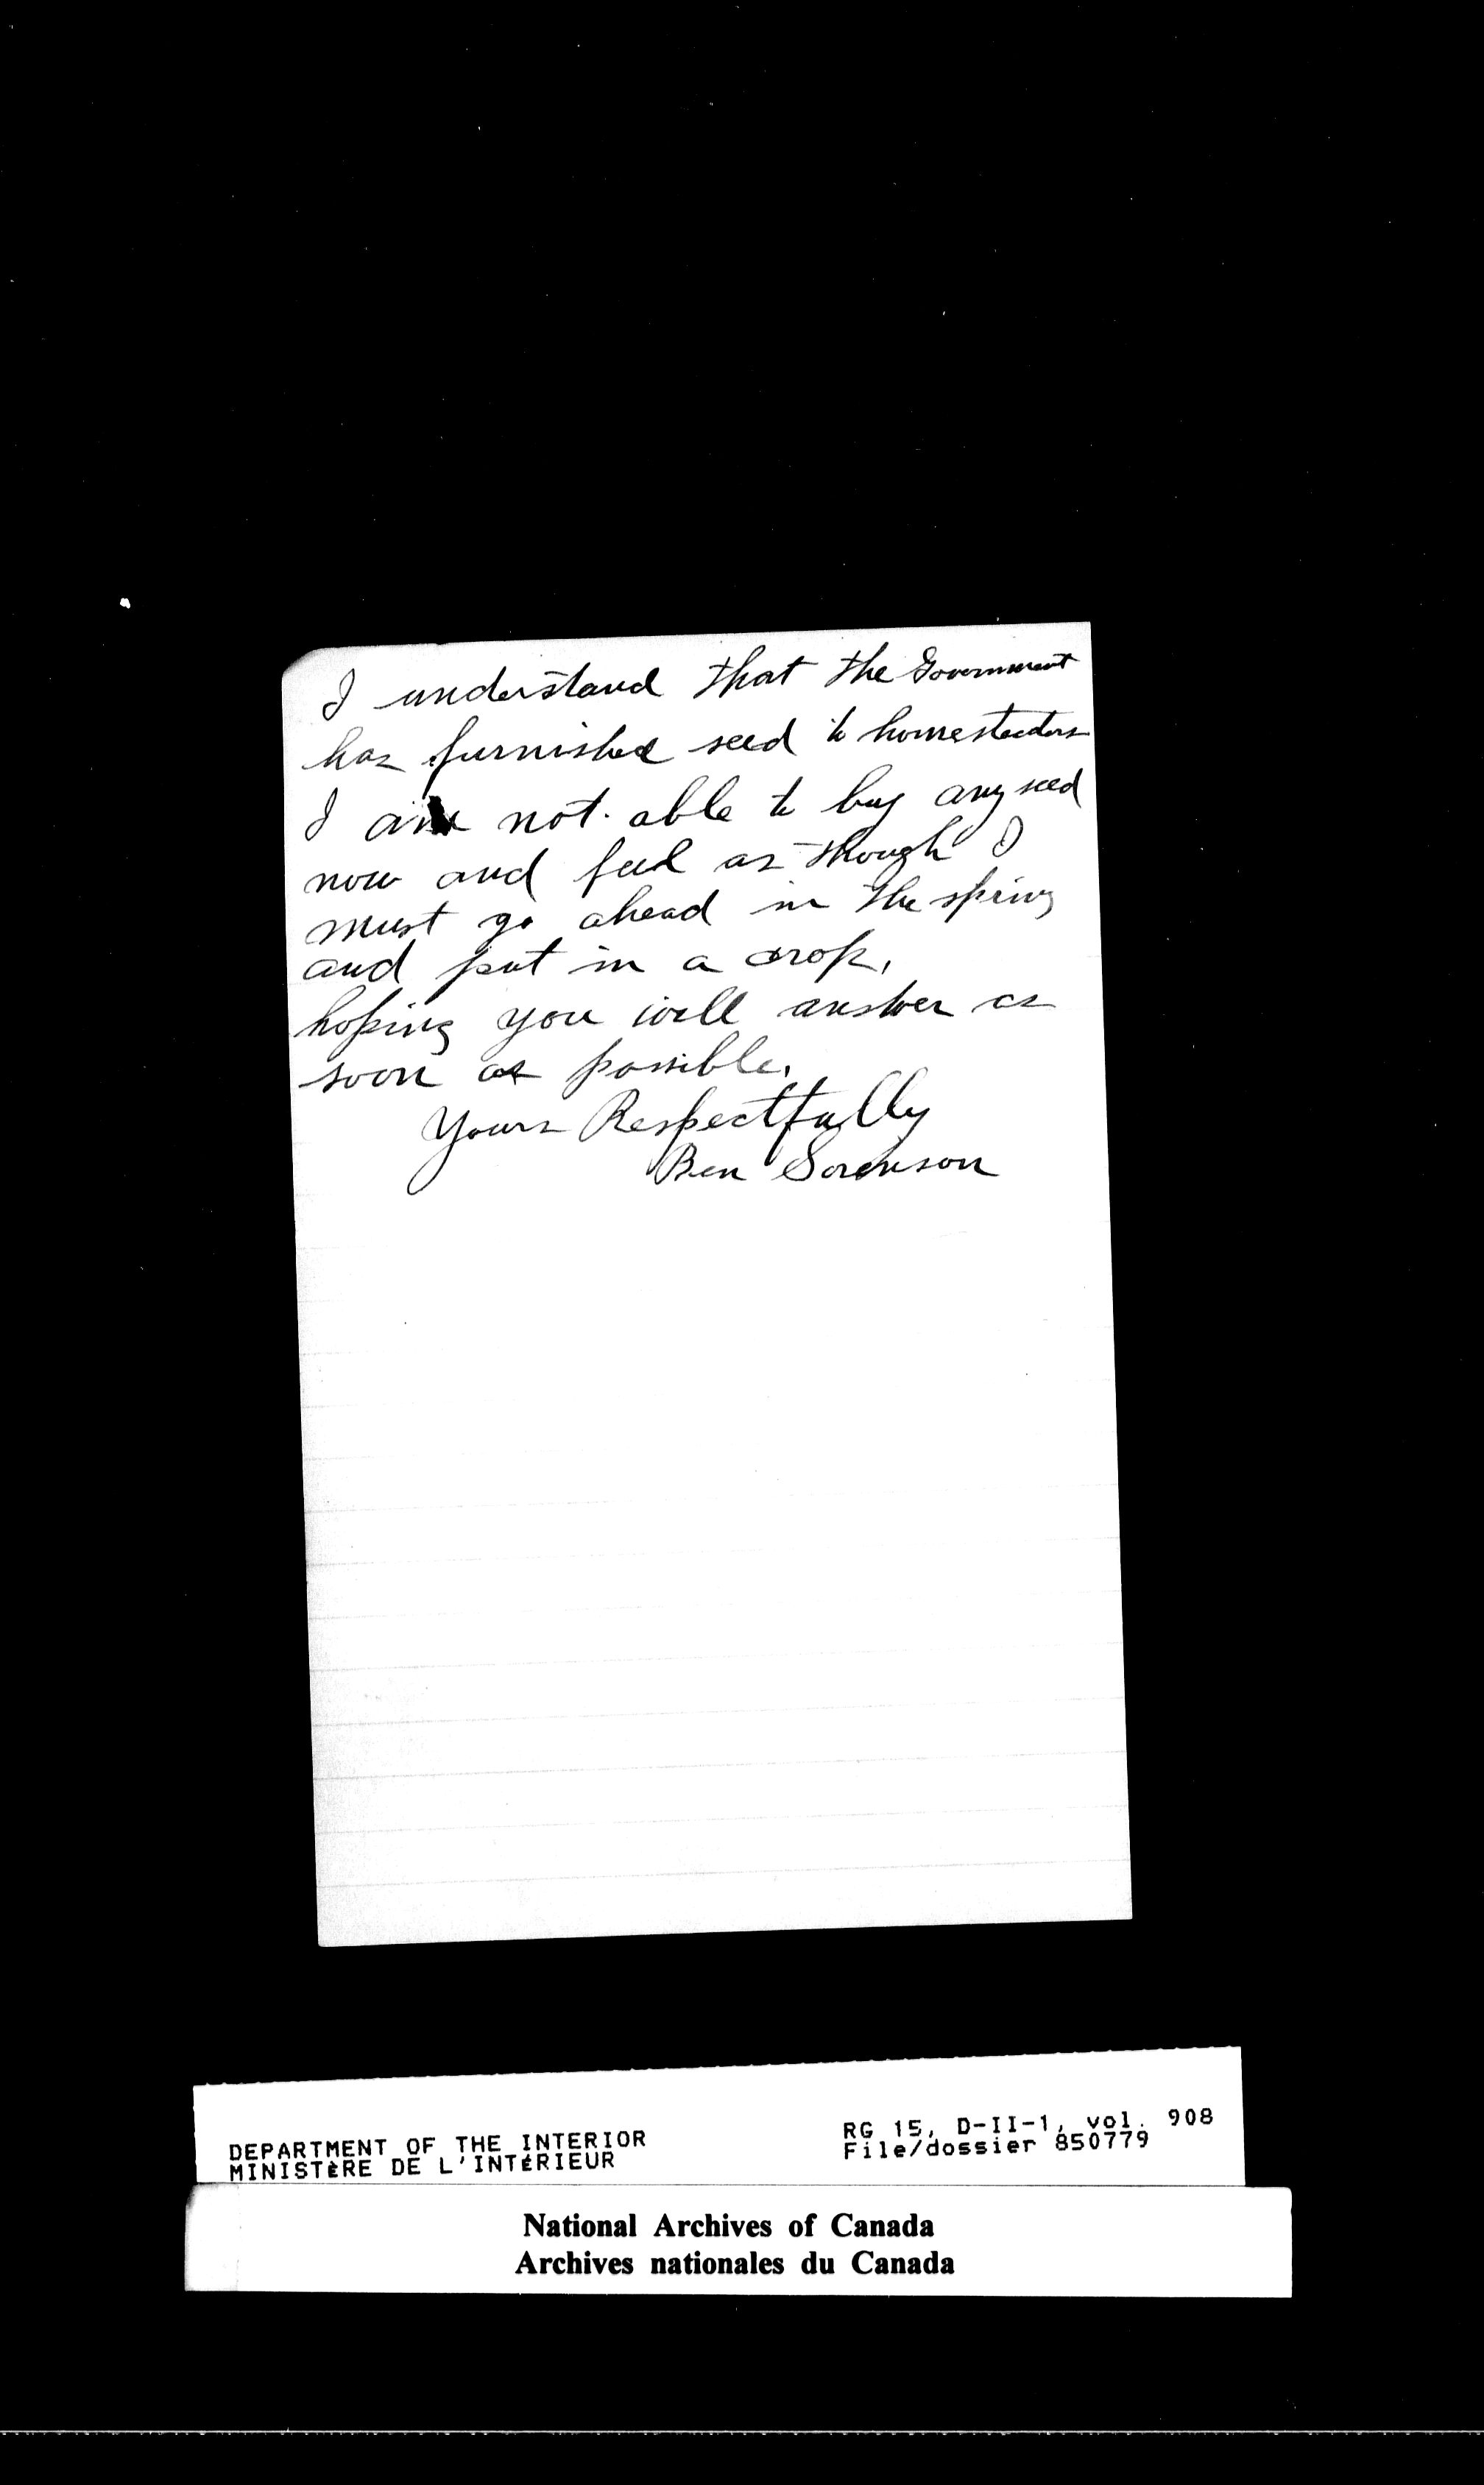 I understand that the Government
has furnished seed to homesteaders
I am not able to buy any seed
now and feel as though I
must go ahead in the spring
and put in a crop,
hoping you will answer as
soon as possible.
Yours Respectfully
Ben Sorenson
DEPARTMENT OF THE INTERIOR
MINISTÈRE DE L'INTÉRIEUR
RG 15, D-II-1, vol. 908
File/dossier 850779
National Archives of Canada
Archives nationales du Canada